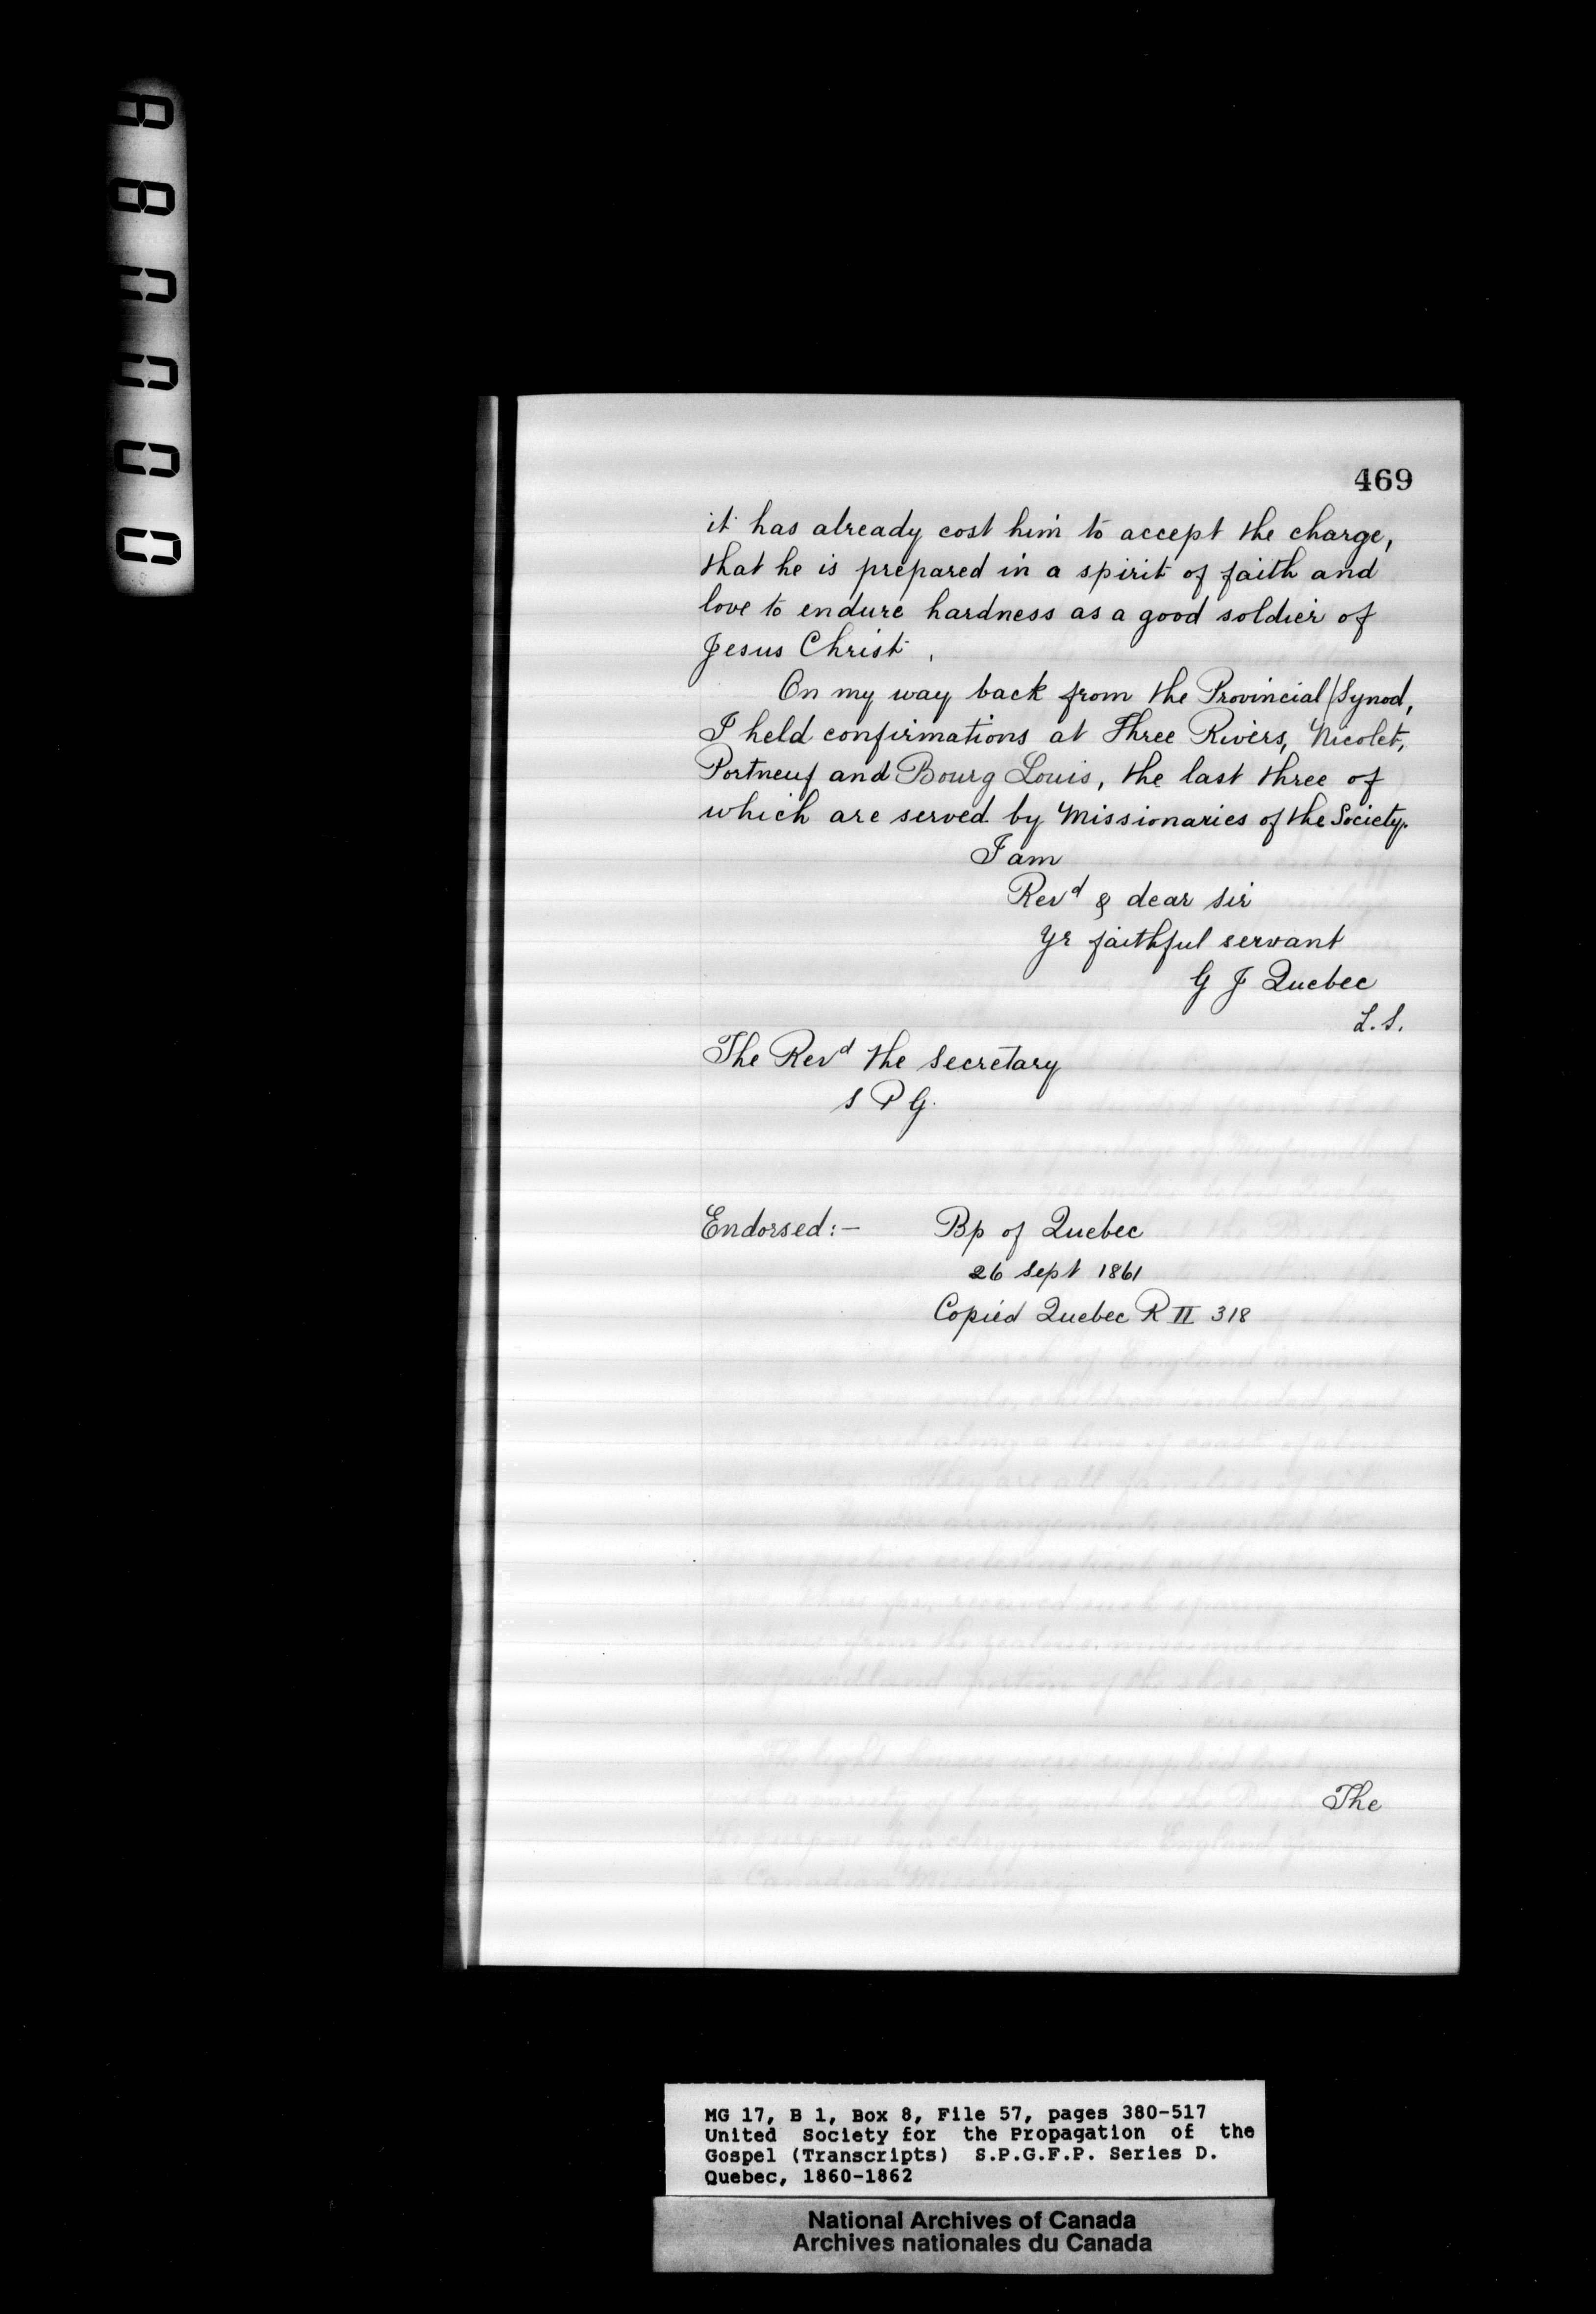 469
it has already cost him to accept the charge,
that he is prepared in a spirit of faith and
love to endure hardness as a good soldier of
Jesus Christ.
On my way back from the Provincial/Synod,
I held confirmations at Three Rivers, Nicolet,
Portneuf and Bourg Louis, the last three of
which are served by Missionaries of the Society.
I am
Revd & dear Sir
Yr faithful servant
G J Quebec
L.S.
The Revd the Secretary
S P G.
Endorsed:- Bp of Quebec
26 Sept 1861
Copied Quebec R II 318
The
MG 17, B 1, Box 8, File 57, pages 380-517
United Society for the Propagation of the
Gospel (Transcripts) S.P.G.F.P. Series D.
Quebec, 1860-1862
National Archives of Canada
Archives nationales du Canada